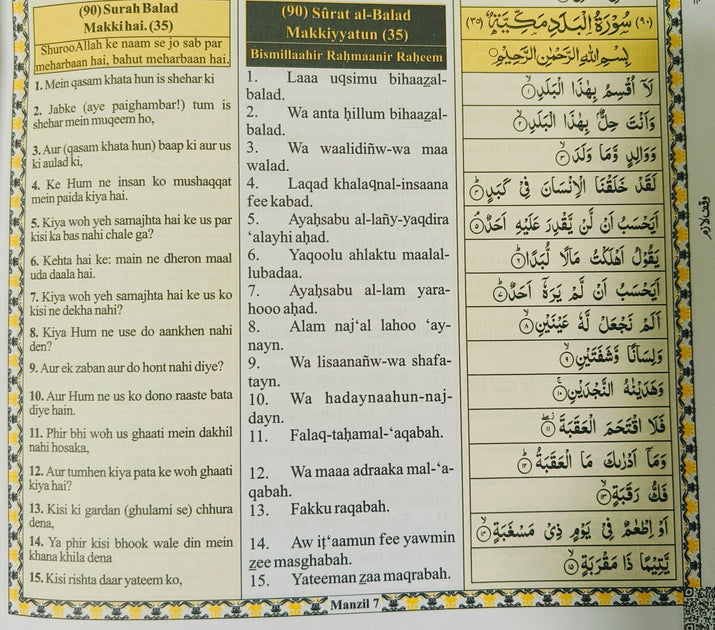 (90) Surah Balad
Makki hai. (35)
Shuroo Allah ke naam se jo sab par
meharbaan hai, bahut meharbaan hai.
1. Mein qasam khata hun is shehar ki
2. Jabke (aye paighambar!) tum is
shehar mein muqeem ho,
3. Aur (qasam khata hun) baap ki aur us
ki aulad ki,
4. Ke Hum ne insan ko mushaqqat
mein paida kiya hai.
5. Kiya woh yeh samajhta hai ke us par
kisi ka bas nahi chale ga?
6. Kehta hai ke: main ne dheron maal
uda daala hai.
7. Kiya woh yeh samajhta hai ke us ko
kisi ne dekha nahi?
8. Kiya Hum ne use do aankhen nahi
den?
9. Aur ek zaban aur do hont nahi diye?
10. Aur Hum ne us ko dono raaste bata
diye hain.
11. Phir bhi woh us ghaati mein dakhil
nahi hosaka,
12. Aur tumhen kiya pata ke woh ghaati
kiya hai?
13. Kisi ki gardan (ghulami se) chhura
dena,
14. Ya phir kisi bhook wale din mein
khana khila dena
15. Kisi rishta daar yateem ko,
(90) Sûrat al-Balad
Makkiyyatun (35)
Bismillaahir Raḥmaanir Raḥeem
1. Laaa uqsimu bihaaẕal-
balad.
2. Wa anta ḥillum bihaaẕal-
balad.
3. Wa waalidiñw-wa maa
walad.
4. Laqad khalaqnal-insaana
fee kabad.
5. Ayaḥsabu al-lañy-yaqdira
‘alayhi aḥad.
6. Yaqoolu ahlaktu maalal-
lubadaa.
7. Ayaḥsabu al-lam yara-
hooo aḥad.
8. Alam naj‘al lahoo ‘ay-
nayn.
9. Wa lisaanañw-wa shafa-
tayn.
10. Wa hadaynaahun-naj-
dayn.
11. Falaq-taḥamal-‘aqabah.
12. Wa maaa adraaka mal-‘a-
qabah.
13. Fakku raqabah.
14. Aw iṭ‘aamun fee yawmin
ẕee masghabah.
15. Yateeman ẕaa maqrabah.
(٩٠) سُوْرَةُ الْبَلَدِ مَكِّيَّةٌ (٣٥)
بِسْمِ اللّٰهِ الرَّحْمٰنِ الرَّحِيْمِ
لَاۤ اُقْسِمُ بِهٰذَا الْبَلَدِۙ﴿١﴾
وَاَنْتَ حِلٌّۢ بِهٰذَا الْبَلَدِۙ﴿٢﴾
وَوَالِدٍ وَّمَا وَلَدَۙ﴿٣﴾
لَقَدْ خَلَقْنَا الْاِنْسَانَ فِيْ كَبَدٍؕ﴿٤﴾
اَيَحْسَبُ اَنْ لَّنْ يَّقْدِرَ عَلَيْهِ اَحَدٌۘ﴿٥﴾
يَقُوْلُ اَهْلَكْتُ مَالًا لُّبَدًاؕ﴿٦﴾
اَيَحْسَبُ اَنْ لَّمْ يَرَهٗۤ اَحَدٌؕ﴿٧﴾
اَلَمْ نَجْعَلْ لَّهٗ عَيْنَيْنِۙ﴿٨﴾
وَلِسَانًا وَّشَفَتَيْنِۙ﴿٩﴾
وَهَدَيْنٰهُ النَّجْدَيْنِۚ﴿١٠﴾
فَلَا اقْتَحَمَ الْعَقَبَةَؗۖ﴿١١﴾
وَمَاۤ اَدْرٰىكَ مَا الْعَقَبَةُؕ﴿١٢﴾
فَكُّ رَقَبَةٍۙ﴿١٣﴾
اَوْ اِطْعٰمٌ فِيْ يَوْمٍ ذِيْ مَسْغَبَةٍۙ﴿١٤﴾
يَّتِيْمًا ذَا مَقْرَبَةٍۙ﴿١٥﴾
وقف لازم
Manzil 7